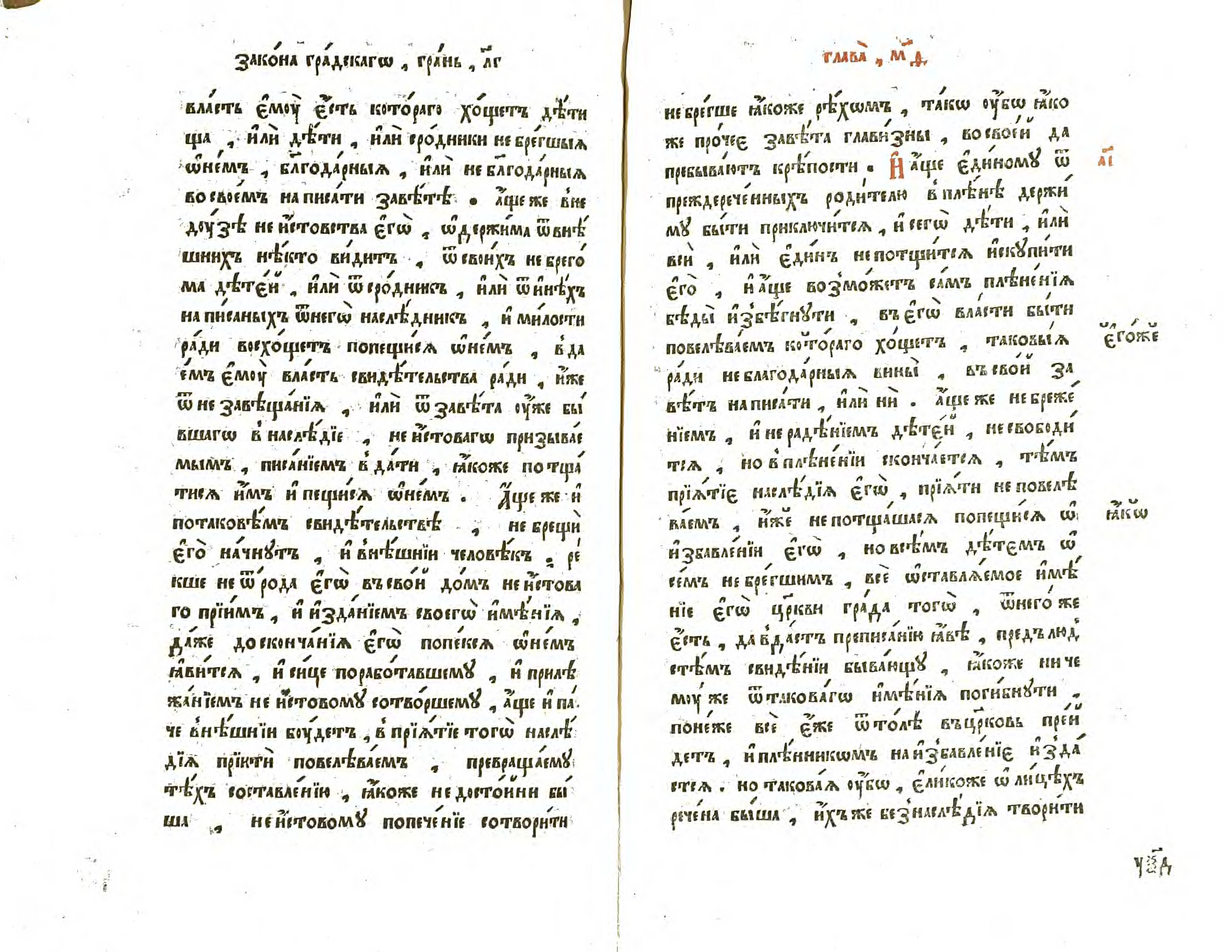 Зако́на гра́дскагѡ , гра́нь , л҃г
вла́сть є҆моу̀ є҆́сть кото́раго хо́щетъ дѣ́ти
ща , и҆лѝ дѣ́ти , и҆лѝ сро́дники не бре́гшыѧ
ѡ҆не́мъ , бл҃года́рныѧ , и҆лѝ не бл҃года́рныѧ
во свое́мъ написа́ти завѣ́тѣ . а҆́ще же в̾не
доу́зѣ не и҆́стовства є҆гѡ̀ , ѡ҆держи́ма ѿвнѣ́
шнихъ нѣ́кто ви́дитъ , ѿ свои́хъ не брего́
ма дѣте́й , и҆лѝ ѿ сро́дникъ , и҆лѝ ѿ и҆нѣ́хъ
написаныхъ ѿнегѡ̀ наслѣ́дникъ , и҆ ми́лости
ра́ди восхо́щетъ попещи́сѧ ѡ҆не́мъ , в̾да
є́мъ є҆моу̀ власть свидѣ́тельства ра́ди , и҆́же
ѿ не завѣща́нїѧ , и҆лѝ ѿ завѣ́та оу҆́же бы́
вшагѡ в̾ наслѣ́дїе , не и҆́стовагѡ призыва́е
мымъ , писа́нїемъ в̾да́ти , ꙗ҆́коже по тща́
тисѧ и҆́мъ и҆ пещи́сѧ ѡ҆не́мъ . А҆́ще же и҆
потако́вѣмъ свидѣ́тельствѣ , не брещѝ
є҆го̀ начну́тъ , и҆ внѣ́шнїи человѣ́къ , ре́
кше не ѿ рода є҆гѡ̀ въ сво́й до́мъ не и҆́стова
го прїи́мъ , и҆ и҆зда́нїемъ своегѡ̀ и҆мѣ́нїѧ ,
да́же до сконча́нїѧ є҆гѡ̀ попе́ксѧ ѡ҆не́мъ
ꙗ҆ви́тсѧ , и҆ си́це порабо́тавшему , и҆ прилѣ
жа́нїемъ не и҆́стовому сотво́ршему , а҆́ще и҆ па́
че в̾нѣ́шнїи боу́детъ , в̾ прїѧ́тїе тогѡ̀ наслѣ́
дїѧ прїитѝ повелѣва́емъ , превраща́ему
тѣ́хъ составле́нїю , ꙗ҆́коже не досто́йни бы́
ша , не и҆́стовому попече́нїе сотвори́ти
глава̀ , м҃д
не бре́гше ꙗ҆́коже рѣ́хомъ , та́кѡ оу҆́бѡ ꙗ҆́ко
же про́чее завѣ́та главизны , во свое́й да
пребыва́ютъ крѣ́пости . И҆ а҆́ще є҆ди́ному ѿ
преждерече́нныхъ роди́телю в̾ плѣ́нѣ держи́
му бы́ти приключи́тсѧ , и҆ сегѡ̀ дѣ́ти , и҆лѝ
всѝ , и҆лѝ є҆ди́нъ не потщи́тсѧ и҆скупи́ти
є҆го̀ , и҆ а҆́ще возмо́жетъ са́мъ плѣне́нїѧ
бѣды̀ и҆збѣ́гнути , въ є҆гѡ̀ вла́сти бы́ти
повелѣва́емъ кото́раго хо́щетъ , таковы́ѧ
ра́ди не благода́рныѧ вины̀ , въ сво́й за
вѣ́тъ написа́ти , и҆лѝ нѝ . а҆́ще же не бреже́
нїемъ , и҆ не раде́нїемъ дѣте́й , не свободи́
тсѧ , но в̾ плѣне́нїи сконча́етсѧ , тѣ́мъ
прїѧ́тїе наслѣ́дїѧ є҆гѡ̀ , прїѧ́ти не повелѣ
ва́емъ , и҆́же не потща́шасѧ попещи́сѧ ѡ҆
и҆збавле́нїи є҆гѡ̀ , но всѣ́мъ дѣ́темъ ѡ҆
се́мъ не бре́гшимъ , всѐ ѡ҆ставлѧ́емое и҆мѣ́
нїе є҆гѡ̀ цр҃кви гра́да тогѡ̀ , ѿнего́ же
є҆́сть , да в̾да́стъ преписа́нїю ꙗ҆́вѣ , предъ люд
стѣ́мъ свидѣ́нїи быва́ющу , ꙗ҆́коже ни че
моу́ же ѿ такова́гѡ и҆мѣ́нїѧ поги́бнути ,
поне́же всѐ є҆́же ѿто́лѣ въ цр҃ковь пре́й
детъ , и҆ плѣ́нникѡмъ на и҆збавле́нїе и҆зда́
стсѧ . но такова́ѧ оу҆́бѡ , є҆ли́коже ѡ҆ лицѣ́хъ
рече́на бы́ша , и҆́хъ же без̾ наслѣ́дїѧ твори́ти
а҃і
є҆го́же
ꙗ҆́кѡ